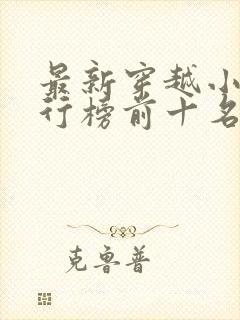 最新穿越小
行榜前十名
克鲁普